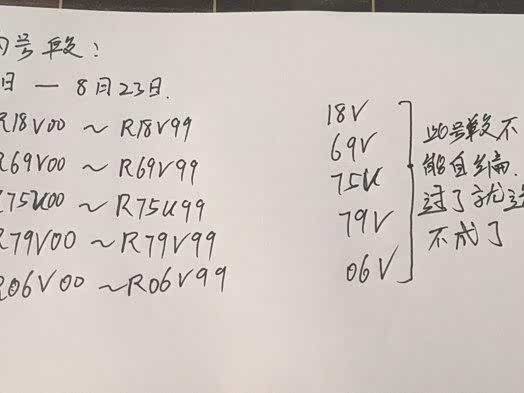 号段:
日 — 8月23日.
R18V00 ~ R18V99
R69V00 ~ R69V99
R75U00 ~ R75U99
R79V00 ~ R79V99
R06V00 ~ R06V99
18V
69V
75U
79V
06V
此号段不
能自编.
过了就选
不成了